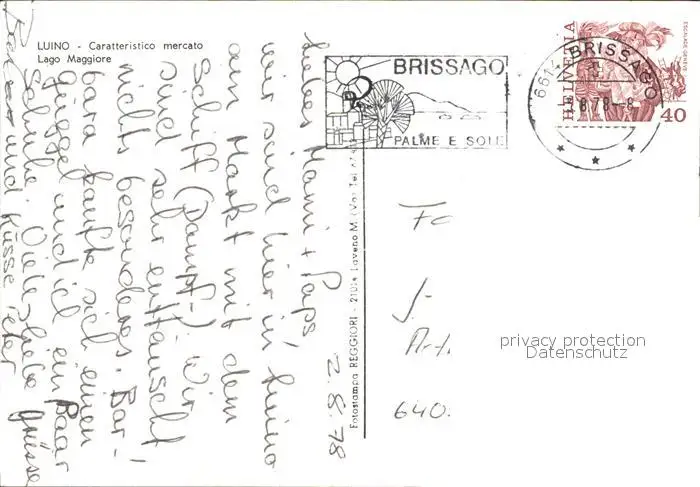 LUINO - Caratteristico mercato
Lago Maggiore
BRISSAGO
PALME E SOLE
6614 BRISSAGO
8.78-8
HELVETIA
ESCALADE GENÈVE
40
2.8.78
Liebes Mami + Paps,
wir sind hier in Luino
am Markt mit dem
Schiff (Dampf-). Wir
sind sehr enttäuscht
nichts besonderes. Bar-
bara kaufte sich einen
und ich ein Paar
Schuhe. Viele liebe Grüsse
und Küsse
Fotostampa REGGIORI - 21014 Laveno M. (Va) Tel.
Fa
J.
Art.
640.
privacy protection
Datenschutz